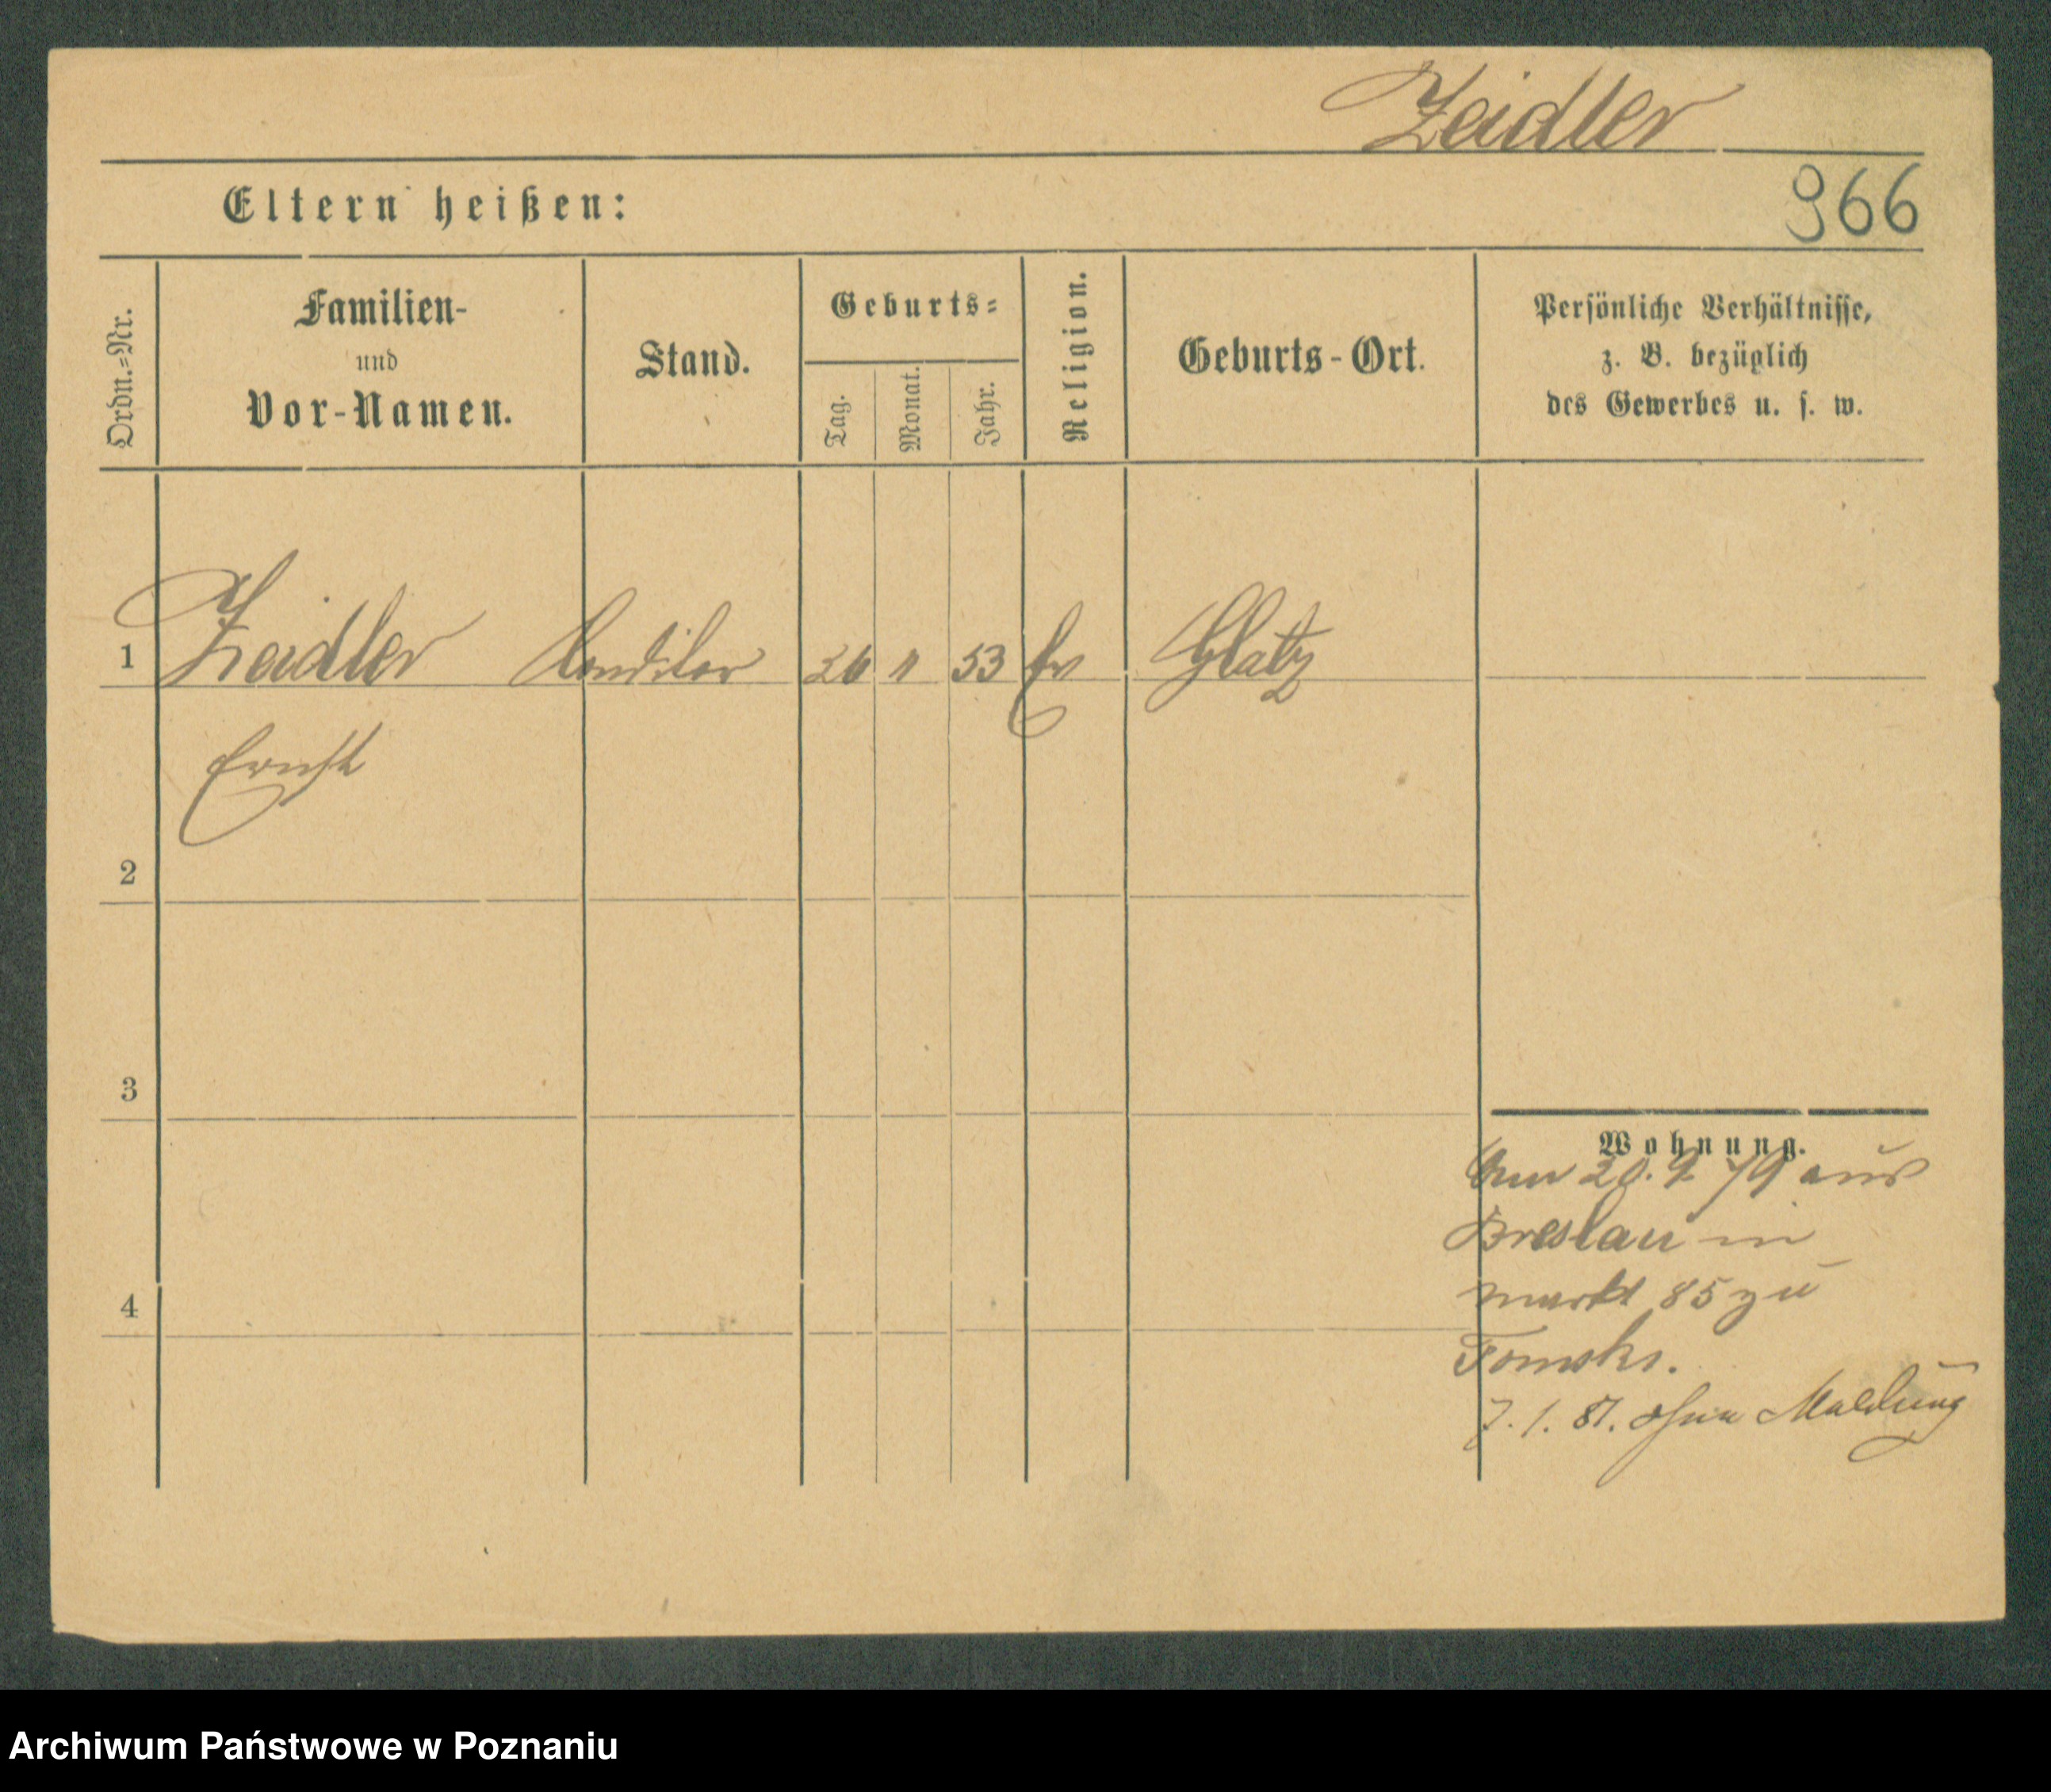 Zeidler
966
Eltern heißen:
Ordn.=Nr.
Familien-
und
Vor-Namen.
Stand.
Geburts=
Tag.
Monat.
Jahr.
Religion.
Geburts-Ort.
Persönliche Verhältnisse,
z. B. bezüglich
des Gewerbes u. s. w.
1 Zeidler Conditor 26 11 53 Ev Glatz
Ernst
2
3
4
Wohnung.
20.9.79 aus
Breslau in
markt 85 zu
Tomski.
7.1.81. ohne Meldung
Archiwum Państwowe w Poznaniu